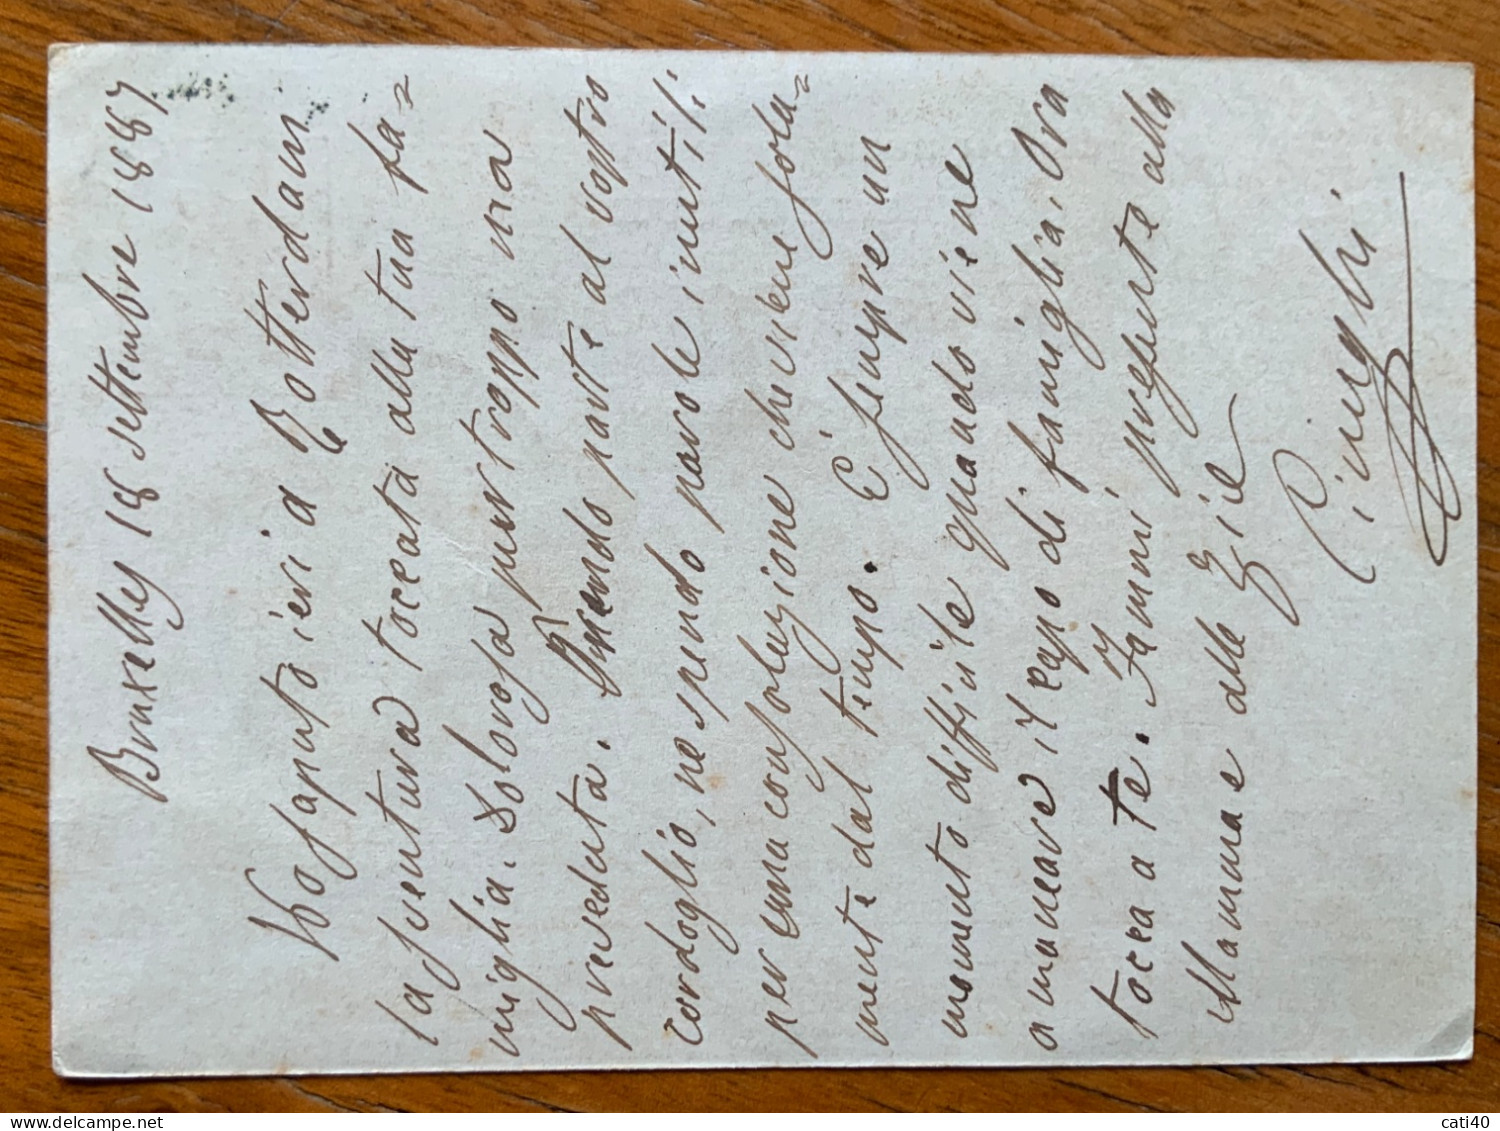 Bruxelles 18 settembre 1887
Ho saputo ieri a Rotterdam
la sventura toccata alla tua fa=
miglia. Dolorosa purtroppo ma
preveduta. Prendo parte al vostro
cordoglio, ne spendo parole inutili
per una consolazione che viene sola=
mente dal tempo. È sempre un
momento difficile quando viene
a mancare il capo di famiglia. Ora
tocca a te. Fammi presente alla
Mamma e alle Zie
cati40